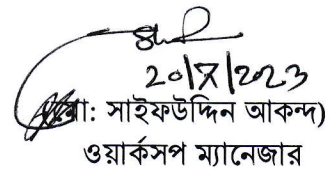 20/7/2023
মো: সাইফউদ্দিন আকন্দ)
ওয়ার্কসপ ম্যানেজার